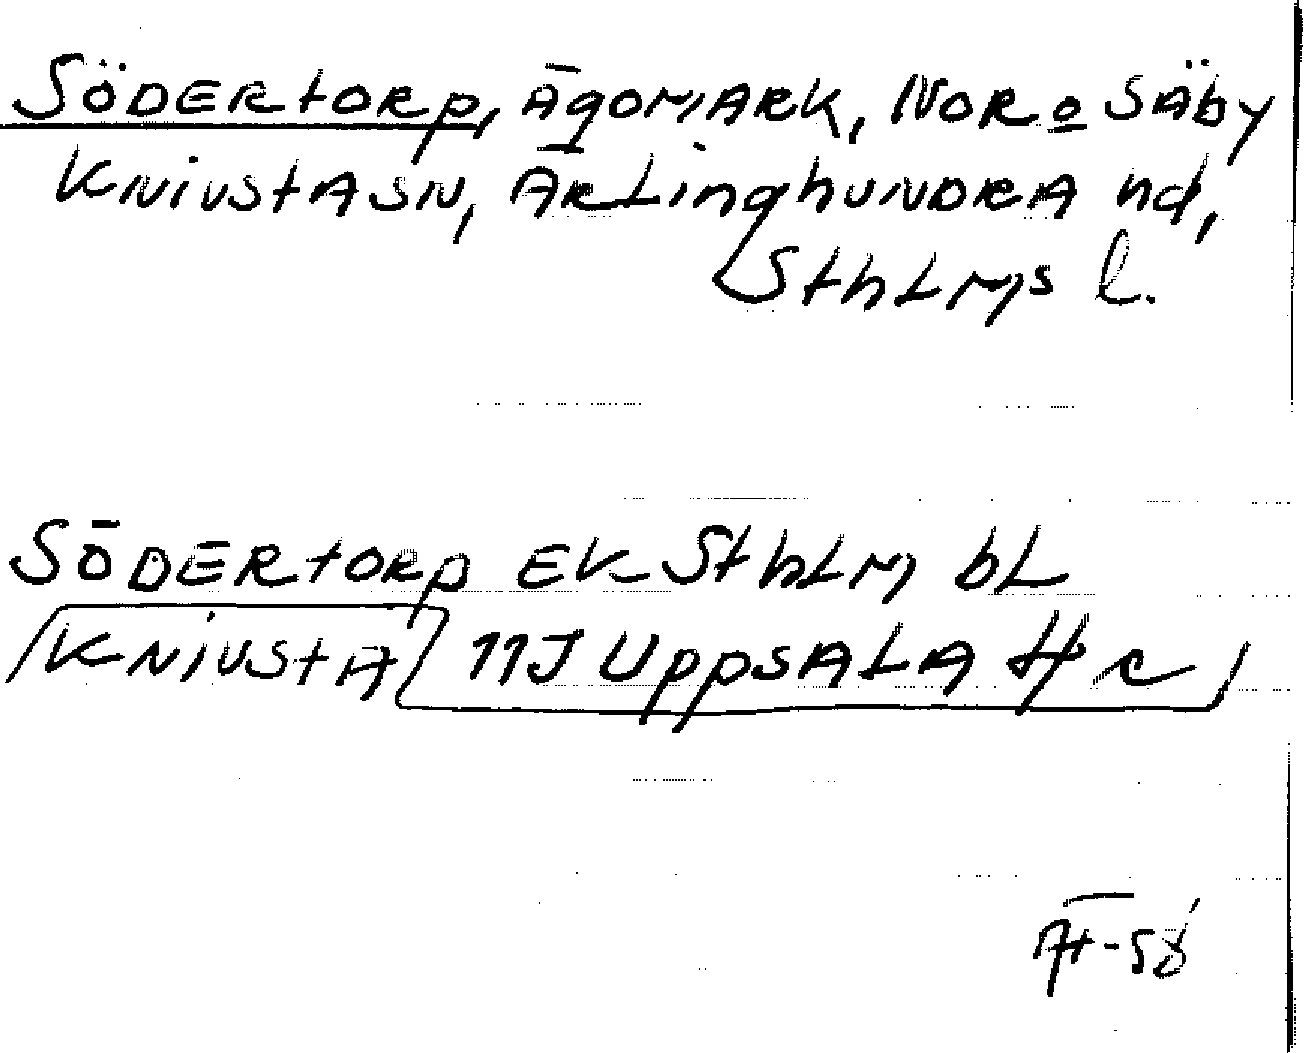 Södertorp, ägomark, Nor o Säby
Knivsta sn, Ärlinghundra hd,
Sthlms l.
Södertorp EK Sthlm bl
Knivsta 11J Uppsala
-58